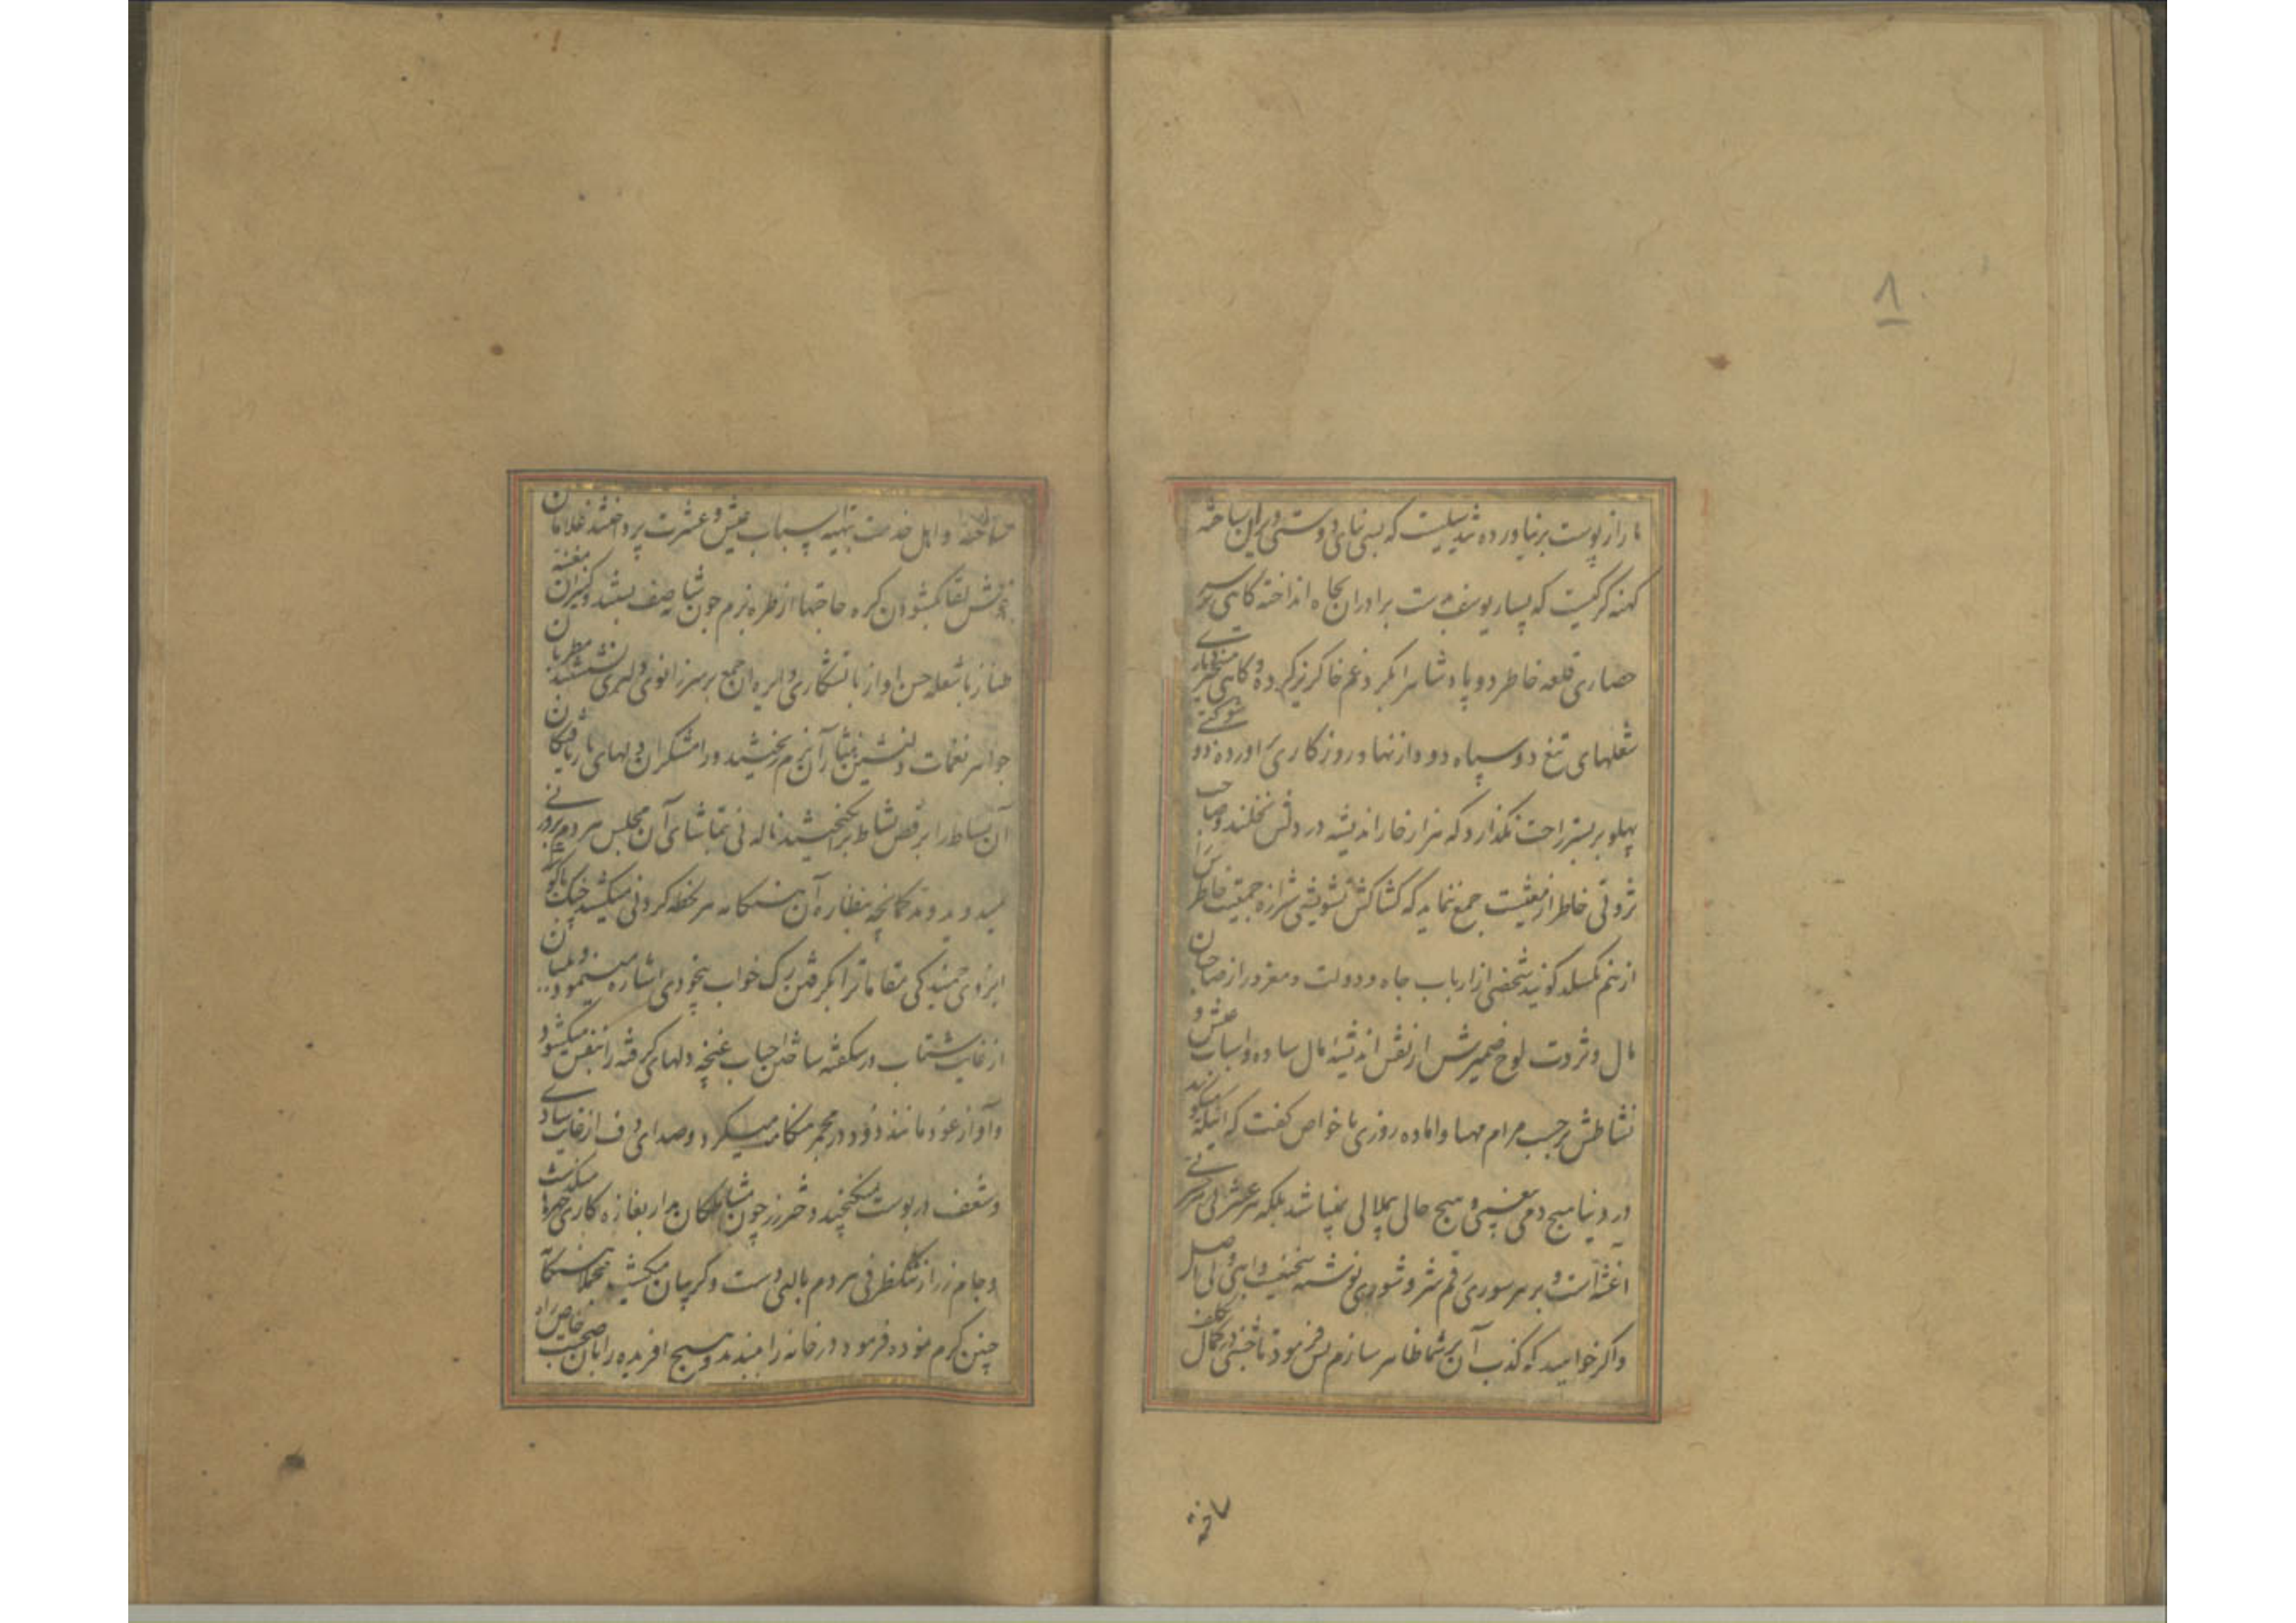 ۸
ما را از پوست برنیاورده شد سیلیست که بسی بنای دوستی ویران ساخته
کهنه کرکیست که بسیار یوسف دست برادران بچاه انداخته کاهی بر سر
حصاری قلعه خاطر دو پادشاه را بکرد غم خاکریز کرده و کاهی بر سر
شعلهای تیغ دو سپاه دود از نهاد روزکاری آورده دو
پهلو بر بستر راحت نکذارد که هزار خار اندیشه در دلش نخلند و صاحب
ثروتی خاطر از معیشت جمع ننماید که کشاکش تشویشی شیرازه جمعیت خاطرش را
از هم نکسلد کویند شخصی از ارباب جاه و دولت و مغرور از صاحبان
مال و ثروت لوح ضمیرش از نقش اندیشه مال ساده و اسباب عیش و
نشاطش برحسب مرام مهیا و اماده روزی با خواص کفت که اینکه میکویند
در دنیا هیچ دمی بیغمی و هیچ حالی بیملالی نمیباشد بلکه هر عشرتی
آغشته است و بر هر سوری رقم شر و شوری نوشته سخنیست واهی و بی اصل
و اکر خواهید که کذب آن بر شما ظاهر سازم پس فرمود تا جشنی در کمال تکلف
ساخته
ساخته و اهل خدمت بتهیه اسباب عیش و عشرت پرداختند غلامان
خوش لقا بکشودن کره حاجتها از طره بزم چون شانه صف بستند و کنیزان مغنیه
طناز با شعله حسن آواز با تشکاری دایره آن جمع بر سر زانوی دلبری نشستند مطربان
جواهر نغمات دلنشین نثار آن بزم بخشیدند و رامشکران دلهای بازیافتکان
آن بساط را برقص نشاط برانکیختند ناله نی بتماشای آن مجلس هر دم از روزنی
میدوید و کمانچه بنظاره آن هنکامه هر لحظه کردنی میکشید چنک با کوشه
ابروی خمیدکی مقاماترا بکرفتن رک خواب بیخودی اشاره مینمود و بلبلان
از غایت شتاب در شکفته ساختن احباب غنچه دلهای کرفته را بنفس میکشود
و آواز عود مانند دود در مجمر هنکامه میکرد و صدای دف از غایت شادی
و شعف در پوست نمیکنجید دختر رز چون مشاطکان بغازه کاری چهره میکذشت
و جام زر از تنکظرفی مردم بالب دست و کریبان میکشید مجملا هنکامه
چنین کرم نموده فرمود در خانه را ببندند و هیچ افریده را بآن صحبت خاص راه